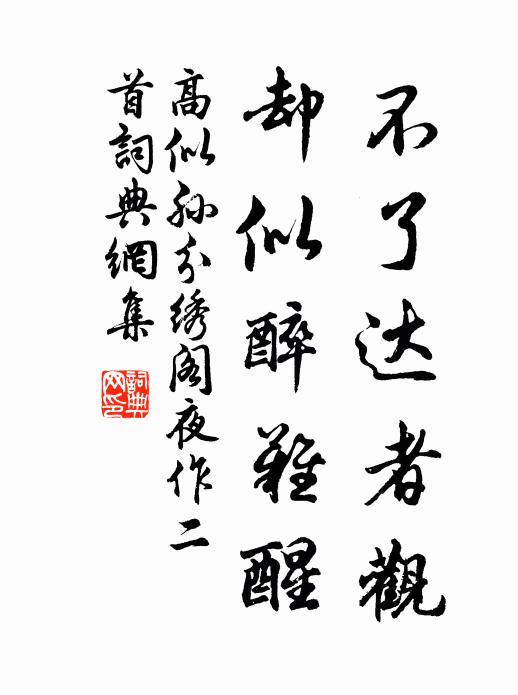 不了达者觀
却似醉難醒
高似孙分绣阁夜作二
首詞典網集
詞典网印